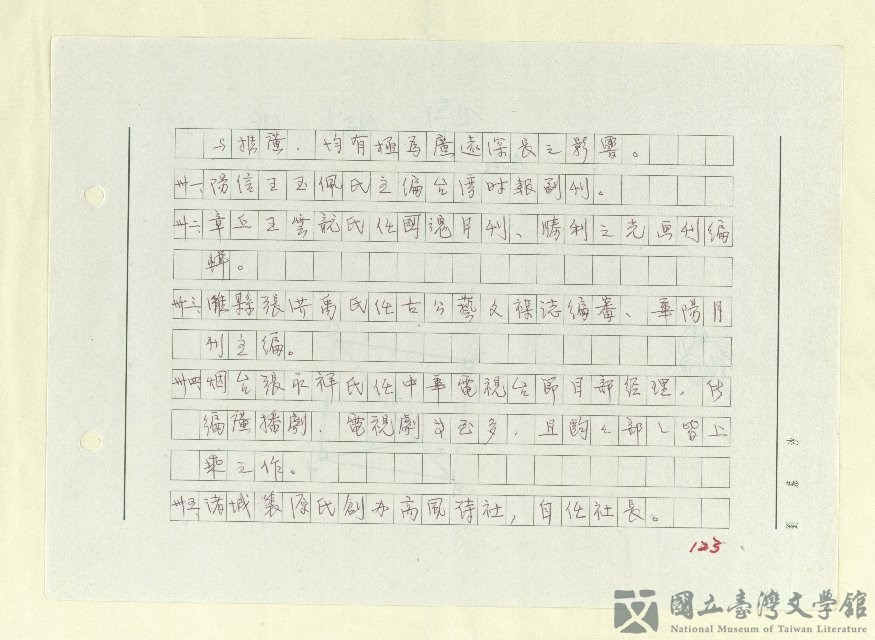 與推廣，均有極為廣遠深長之影響。
卅一、陽信王玉佩氏主編台灣时報副刊。
卅二、章丘王雲龍氏任國魂月刊、勝利之光画刊編
輯。
卅三、濰縣張洪禹氏任古今藝文襍誌編審、華陽月
刊主編。
卅四、烟台張永祥氏任中華電視台節目部经理，所
編廣播劇，電視劇甚多，且部部皆上
乘之作。
卅五、諸城龔源氏創办高風诗社，自任社長。
123
國立臺灣文學館
National Museum of Taiwan Literature